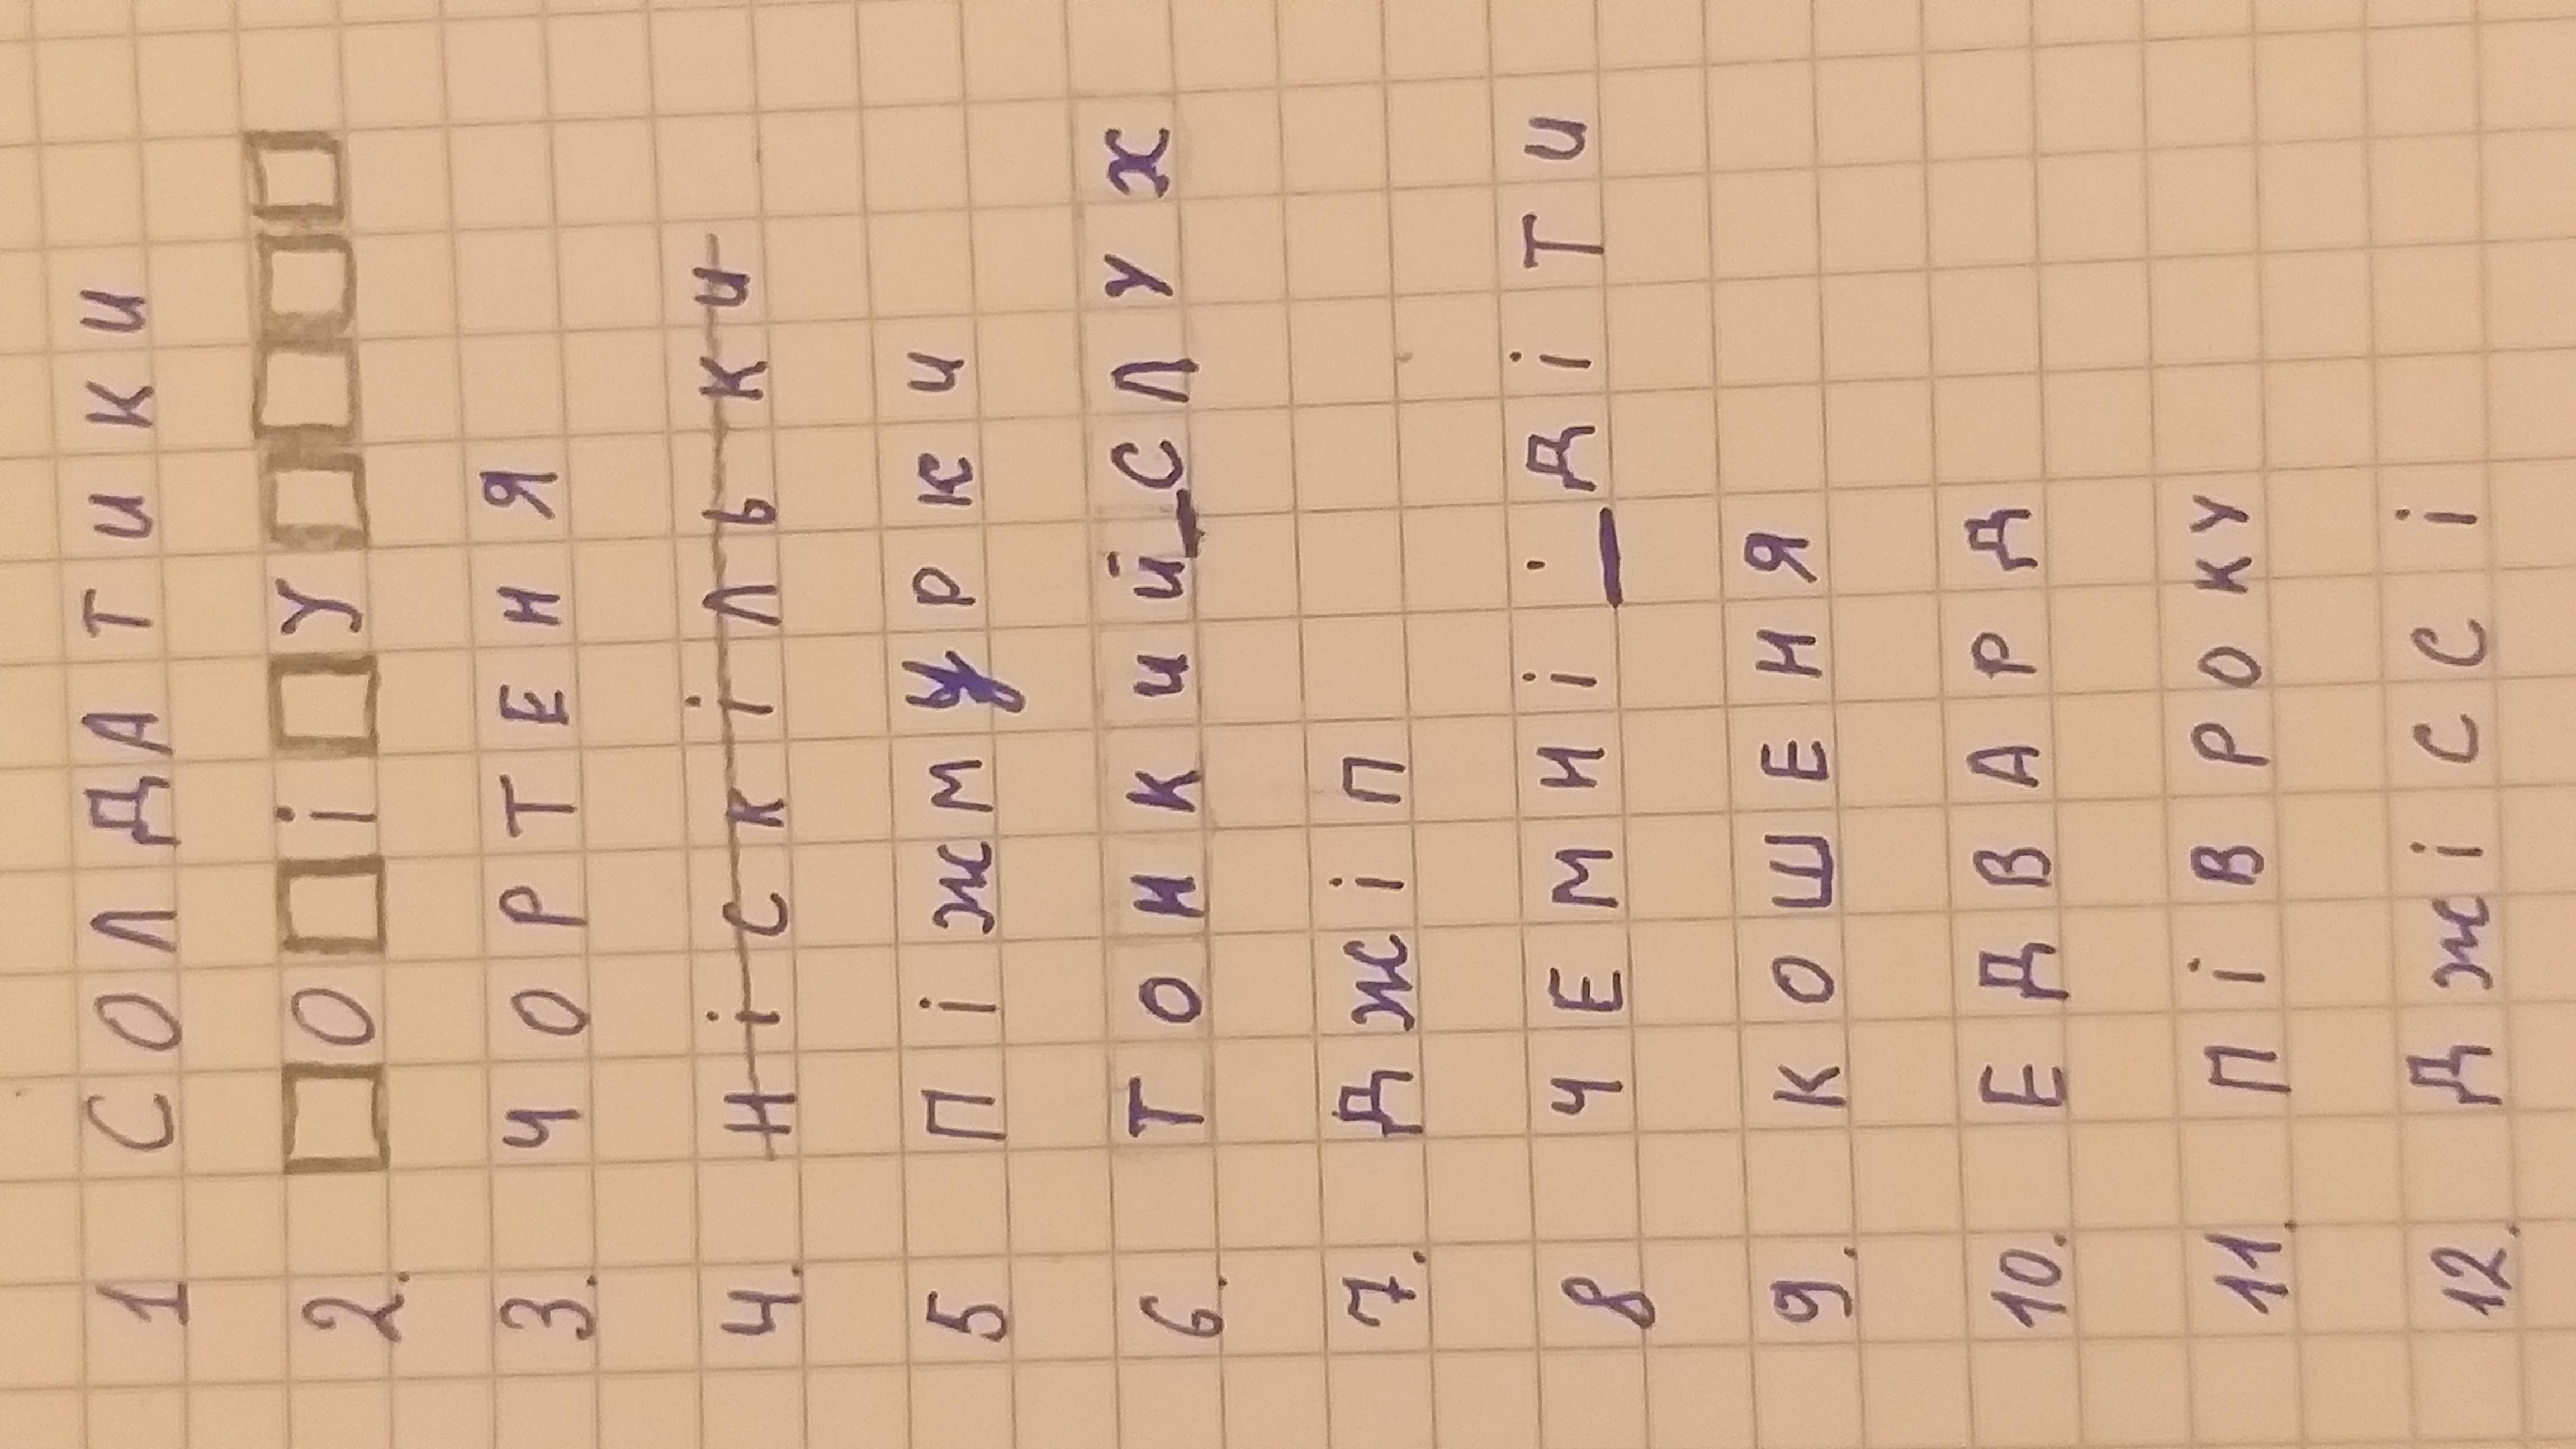 1 СОЛДАТИКИ
2. □О□і□У□□□□
3. ЧОРТЕНЯ
4. НіСКіЛЬКИ
5 ПіЖМУРКИ
6. ТОНКИЙ_СЛУХ
7. ДЖіП
8 ЧЕМНі_ДіТИ
9. КОШЕНЯ
10. ЕДВАРД
11. ПіВРОКУ
12. ДЖіССі